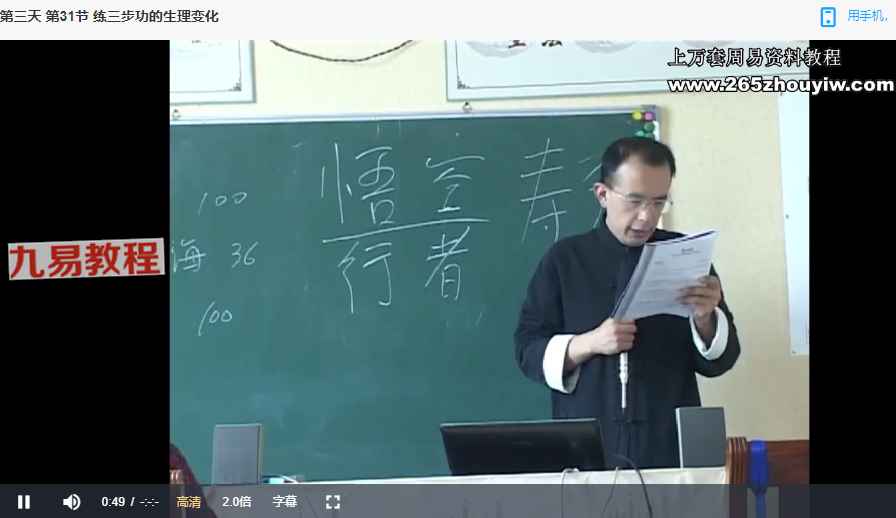 第三天 第31节 练三步功的生理变化
用手机,
上万套周易资料教程
www.265zhouyiw.com
悟空 寿
100
行者
海 36
九易教程
100
0:49 / -:-:-
高清
2.0倍
字幕